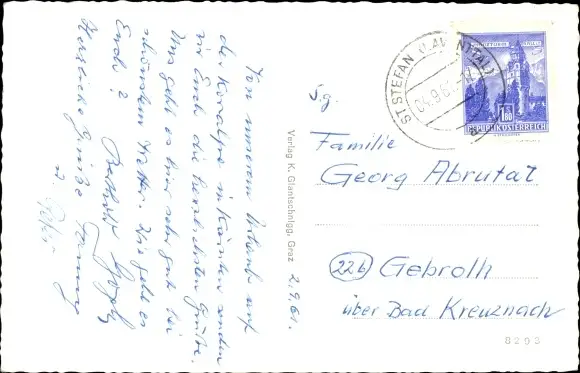 Von unserem Urlaub auf
der Koralpe in Kärnten senden
wir Euch die herzlichsten Grüße.
Uns geht es hier sehr gut bei
schönstem Wetter. Wie geht es
Euch?
Herzliche Grüße
2.9.61.
Verlag K. Glantschnigg, Graz
ST. STEFAN (LAVANTTAL)
REPUBLIK ÖSTERREICH
1.80
S.g.
Familie
Georg Abrutat
22b Gebroth
über Bad Kreuznach
8293